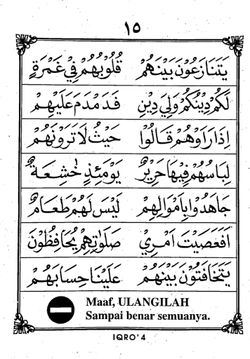 ١٥
يَتَنَازَعُوْنَ بَيْنَهُمْ قُلُوْبُهُمْ فِيْ غَمْرَةٍ
لَكُمْ دِيْنُكُمْ وَلِيَ دِيْنِ فَدَمْدَمَ عَلَيْهِمْ
اِذَا رَاَوْهُمْ قَالُوْا حَيْثُ لَا تَرَوْنَهُمْ
لِبَاسُهُمْ فِيْهَا حَرِيْرٌ يَوْمَئِذٍ خٰشِعَةٌ
جَاهَدُوْا بِاَمْوَالِهِمْ لَيْسَ لَهُمْ طَعَامٌ
اَفَعَصَيْتَ اَمْرِيْ صَلَوٰتِهِمْ يُحَافِظُوْنَ
يَتَخَافَتُوْنَ بَيْنَهُمْ عَلَيْنَا حِسَابَهُمْ
Maaf, ULANGILAH
Sampai benar semuanya.
IQRO' 4